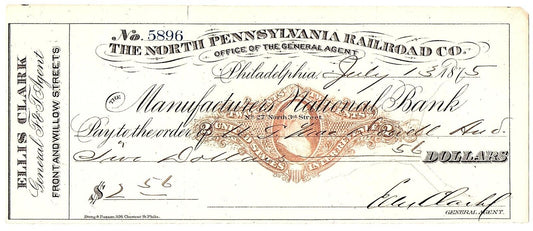 No. 5896
THE NORTH PENNSYLVANIA RAILROAD CO.
OFFICE OF THE GENERAL AGENT
Philadelphia, July 13 1875
THE Manufacturers National Bank
No 27 North 3rd Street
Pay to the order of
Two Dollars 56 DOLLARS
$2 56
Ellis Clark
GENERAL AGENT.
ELLIS CLARK
General Agent
FRONT AND WILLOW STREETS
UNITED STATES